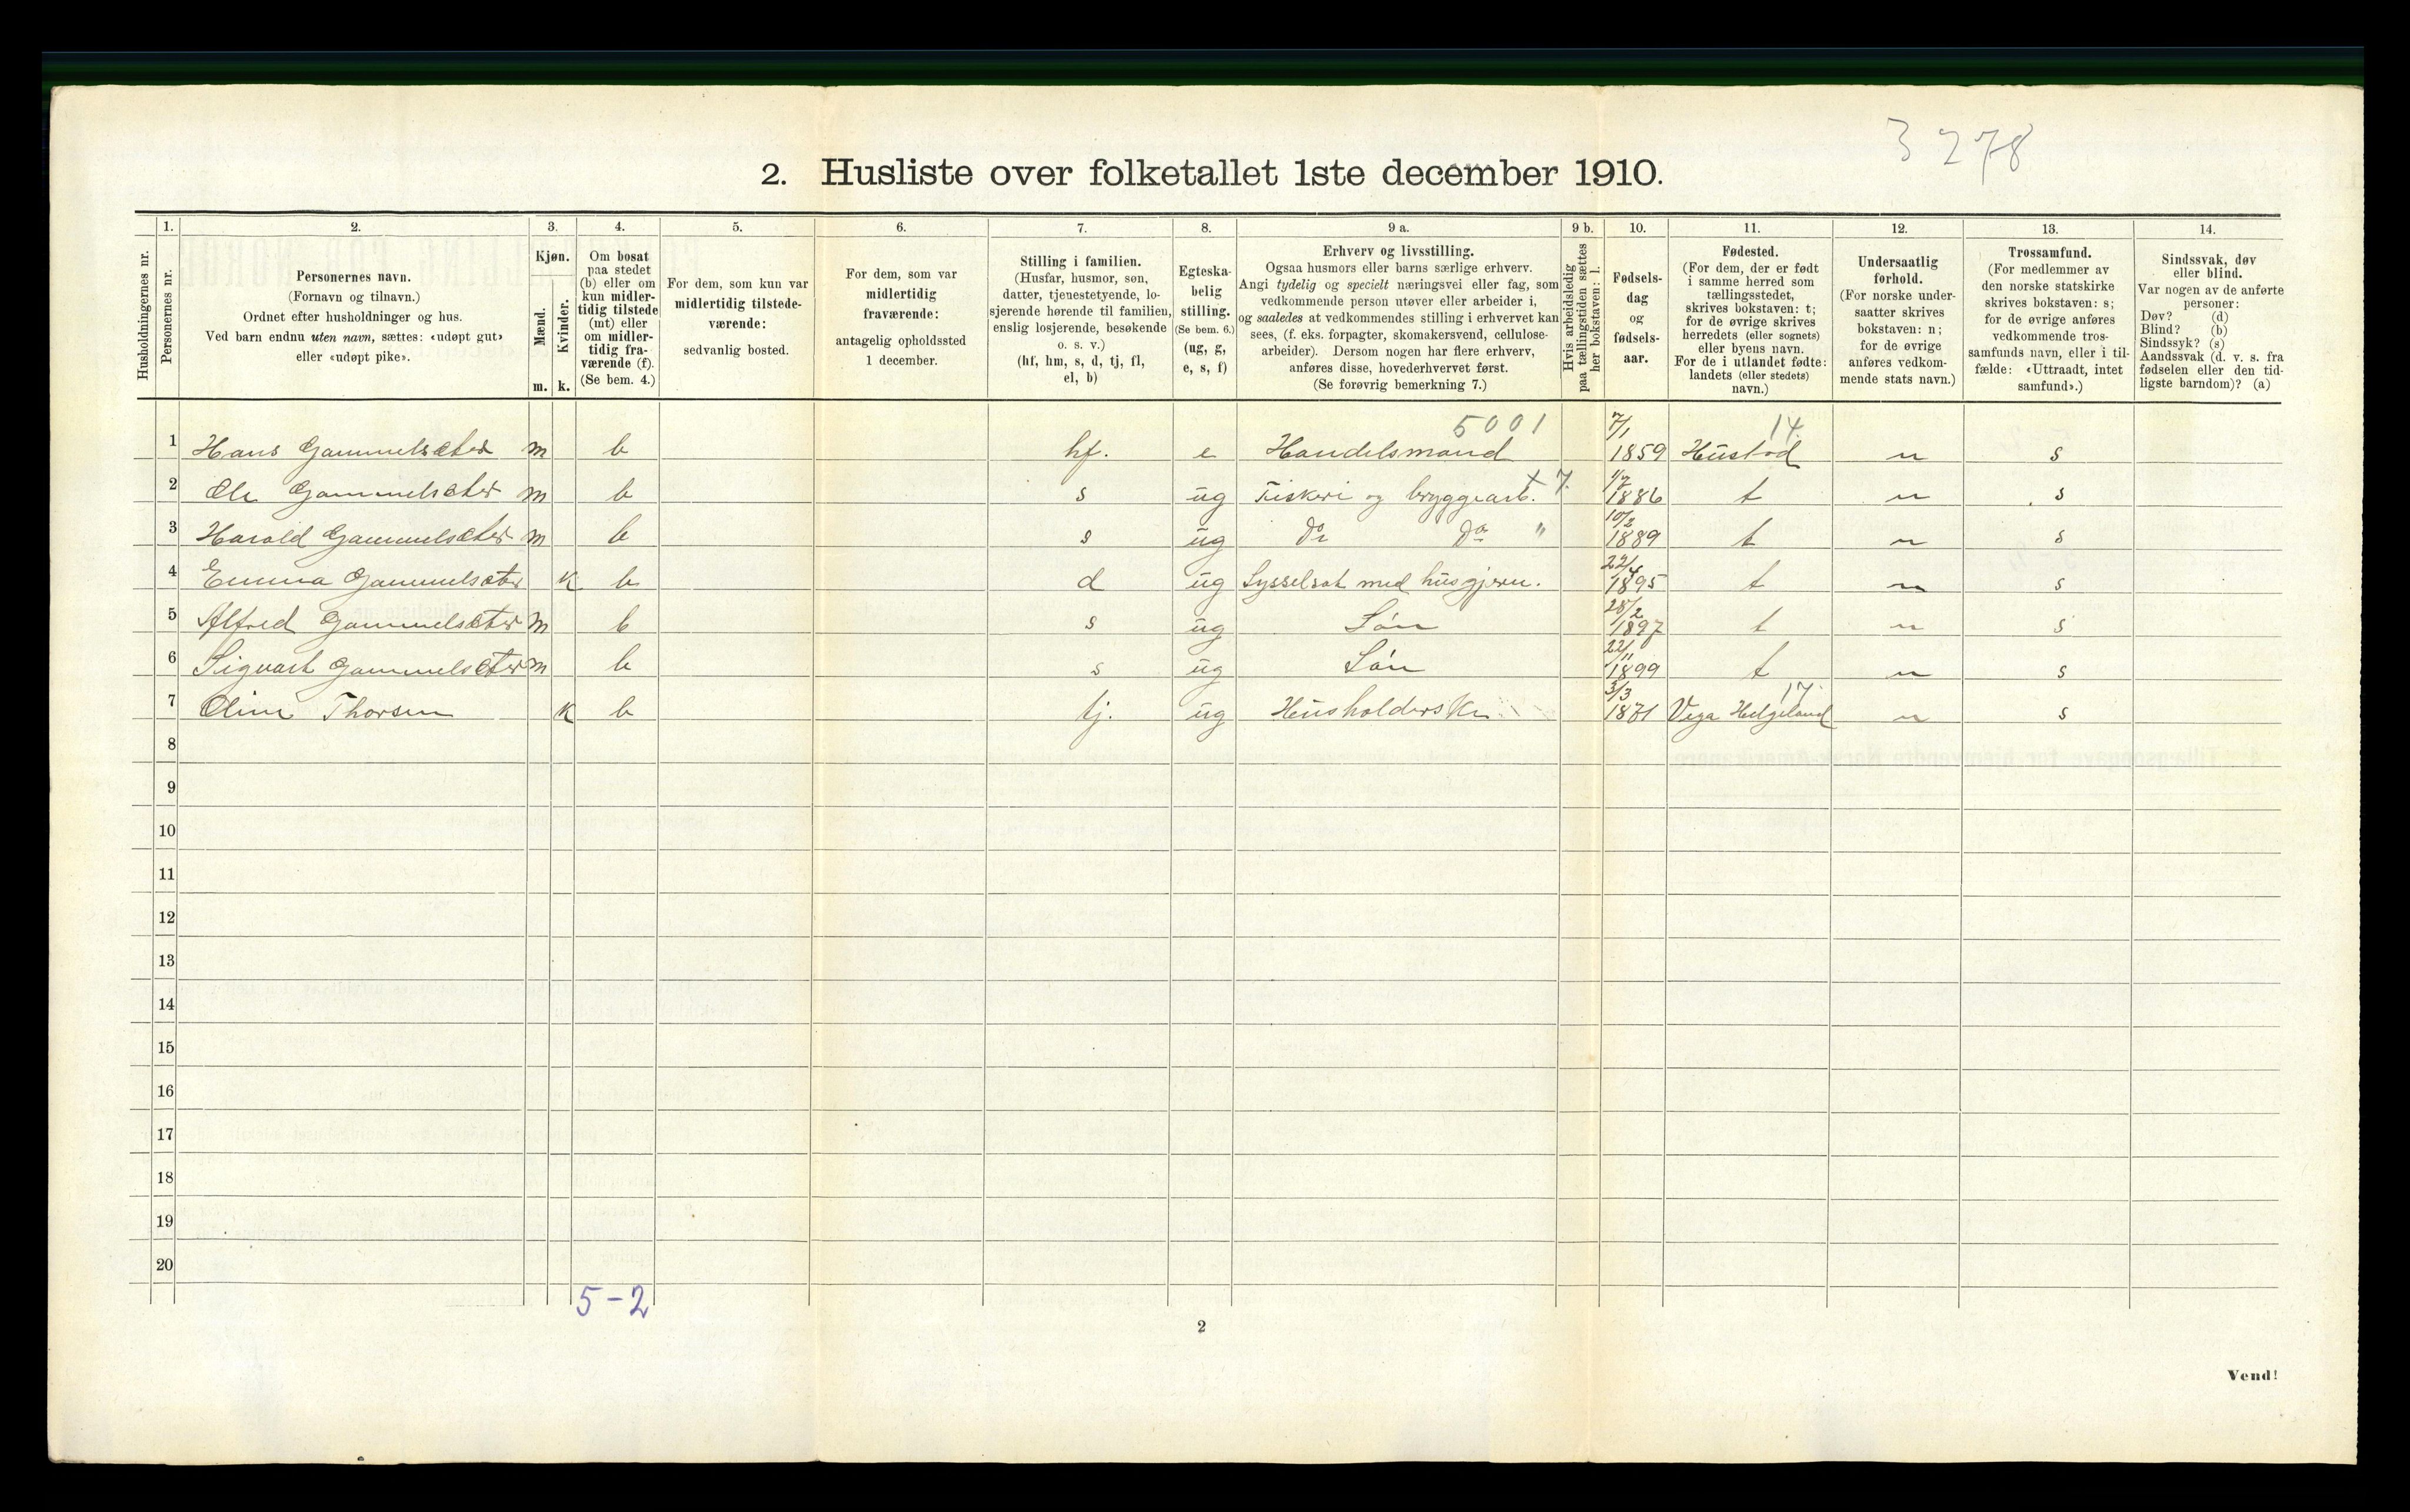 3 278
2. Husliste over folketallet 1ste december 1910.
Husholdningernes nr.
1.
Personernes nr.
2.
Personernes navn.
(Fornavn og tilnavn.)
Ordnet efter husholdninger og hus.
Ved barn endnu uten navn, sættes: «udøpt gut»
eller «udøpt pike».
3.
Kjøn.
Mænd.
Kvinder.
m. k.
4.
Om bosat
paa stedet
(b) eller om
kun midler-
tidig tilstede
(mt) eller
om midler-
tidig fra-
værende (f).
(Se bem. 4.)
5.
For dem, som kun var
midlertidig tilstede-
værende:
sedvanlig bosted.
6.
For dem, som var
midlertidig
fraværende:
antagelig opholdssted
1 december.
7.
Stilling i familien.
(Husfar, husmor, søn,
datter, tjenestetyende, lo-
sjerende hørende til familien,
enslig losjerende, besøkende
o. s. v.)
(hf, hm, s, d, tj, fl,
el, b)
8.
Egteska-
belig
stilling.
(Se bem. 6.)
(ug, g,
e, s, f)
9 a.
Erhverv og livsstilling.
Ogsaa husmors eller barns særlige erhverv.
Angi tydelig og specielt næringsvei eller fag, som
vedkommende person utøver eller arbeider i,
og saaledes at vedkommendes stilling i erhvervet kan
sees, (f. eks. forpagter, skomakersvend, cellulose-
arbeider). Dersom nogen har flere erhverv,
anføres disse, hovederhvervet først.
(Se forøvrig bemerkning 7.)
9 b.
Hvis arbeidsledig
paa tællingstiden sættes
her bokstaven: l.
10.
Fødsels-
dag
og
fødsels-
aar.
11.
Fødested.
(For dem, der er født
i samme herred som
tællingsstedet,
skrives bokstaven: t;
for de øvrige skrives
herredets (eller sognets)
eller byens navn.
For de i utlandet fødte:
landets (eller stedets)
navn.)
12.
Undersaatlig
forhold.
(For norske under-
saatter skrives
bokstaven: n;
for de øvrige
anføres vedkom-
mende stats navn.)
13.
Trossamfund.
(For medlemmer av
den norske statskirke
skrives bokstaven: s;
for de øvrige anføres
vedkommende tros-
samfunds navn, eller i til-
fælde: «Uttraadt, intet
samfund».)
14.
Sindssvak, døv
eller blind.
Var nogen av de anførte
personer:
Døv? (d)
Blind? (b)
Sindssyk? (s)
Aandssvak (d. v. s. fra
fødselen eller den tid-
ligste barndom)? (a)
5001 7/1 14.
1 Hans Gammelsæter m b hf. e Handelsmand 1859 Hustad n s
2 Ole Gammelsæter m b s ug Fiskeri og bryggearb. x 7. 1886 t n s
3 Harald Gammelsæter m b s ug do do " 10/2 1889 t n s
4 Emma Gammelsæter k b d ug Sysselsat med husgjern. 22/4 1895 t n s
5 Alfred Gammelsæter m b s ug Søn 28/2 1897 t n s
6 Sigvart Gammelsæter m b s ug Søn 22/11 1899 t n s
7 Oline Thorsen k b tj. ug Husholderske 3/3 1871 Vega Helgeland 17. n s
8
9
10
11
12
13
14
15
16
17
18
19
20
5-2
2
Vend!